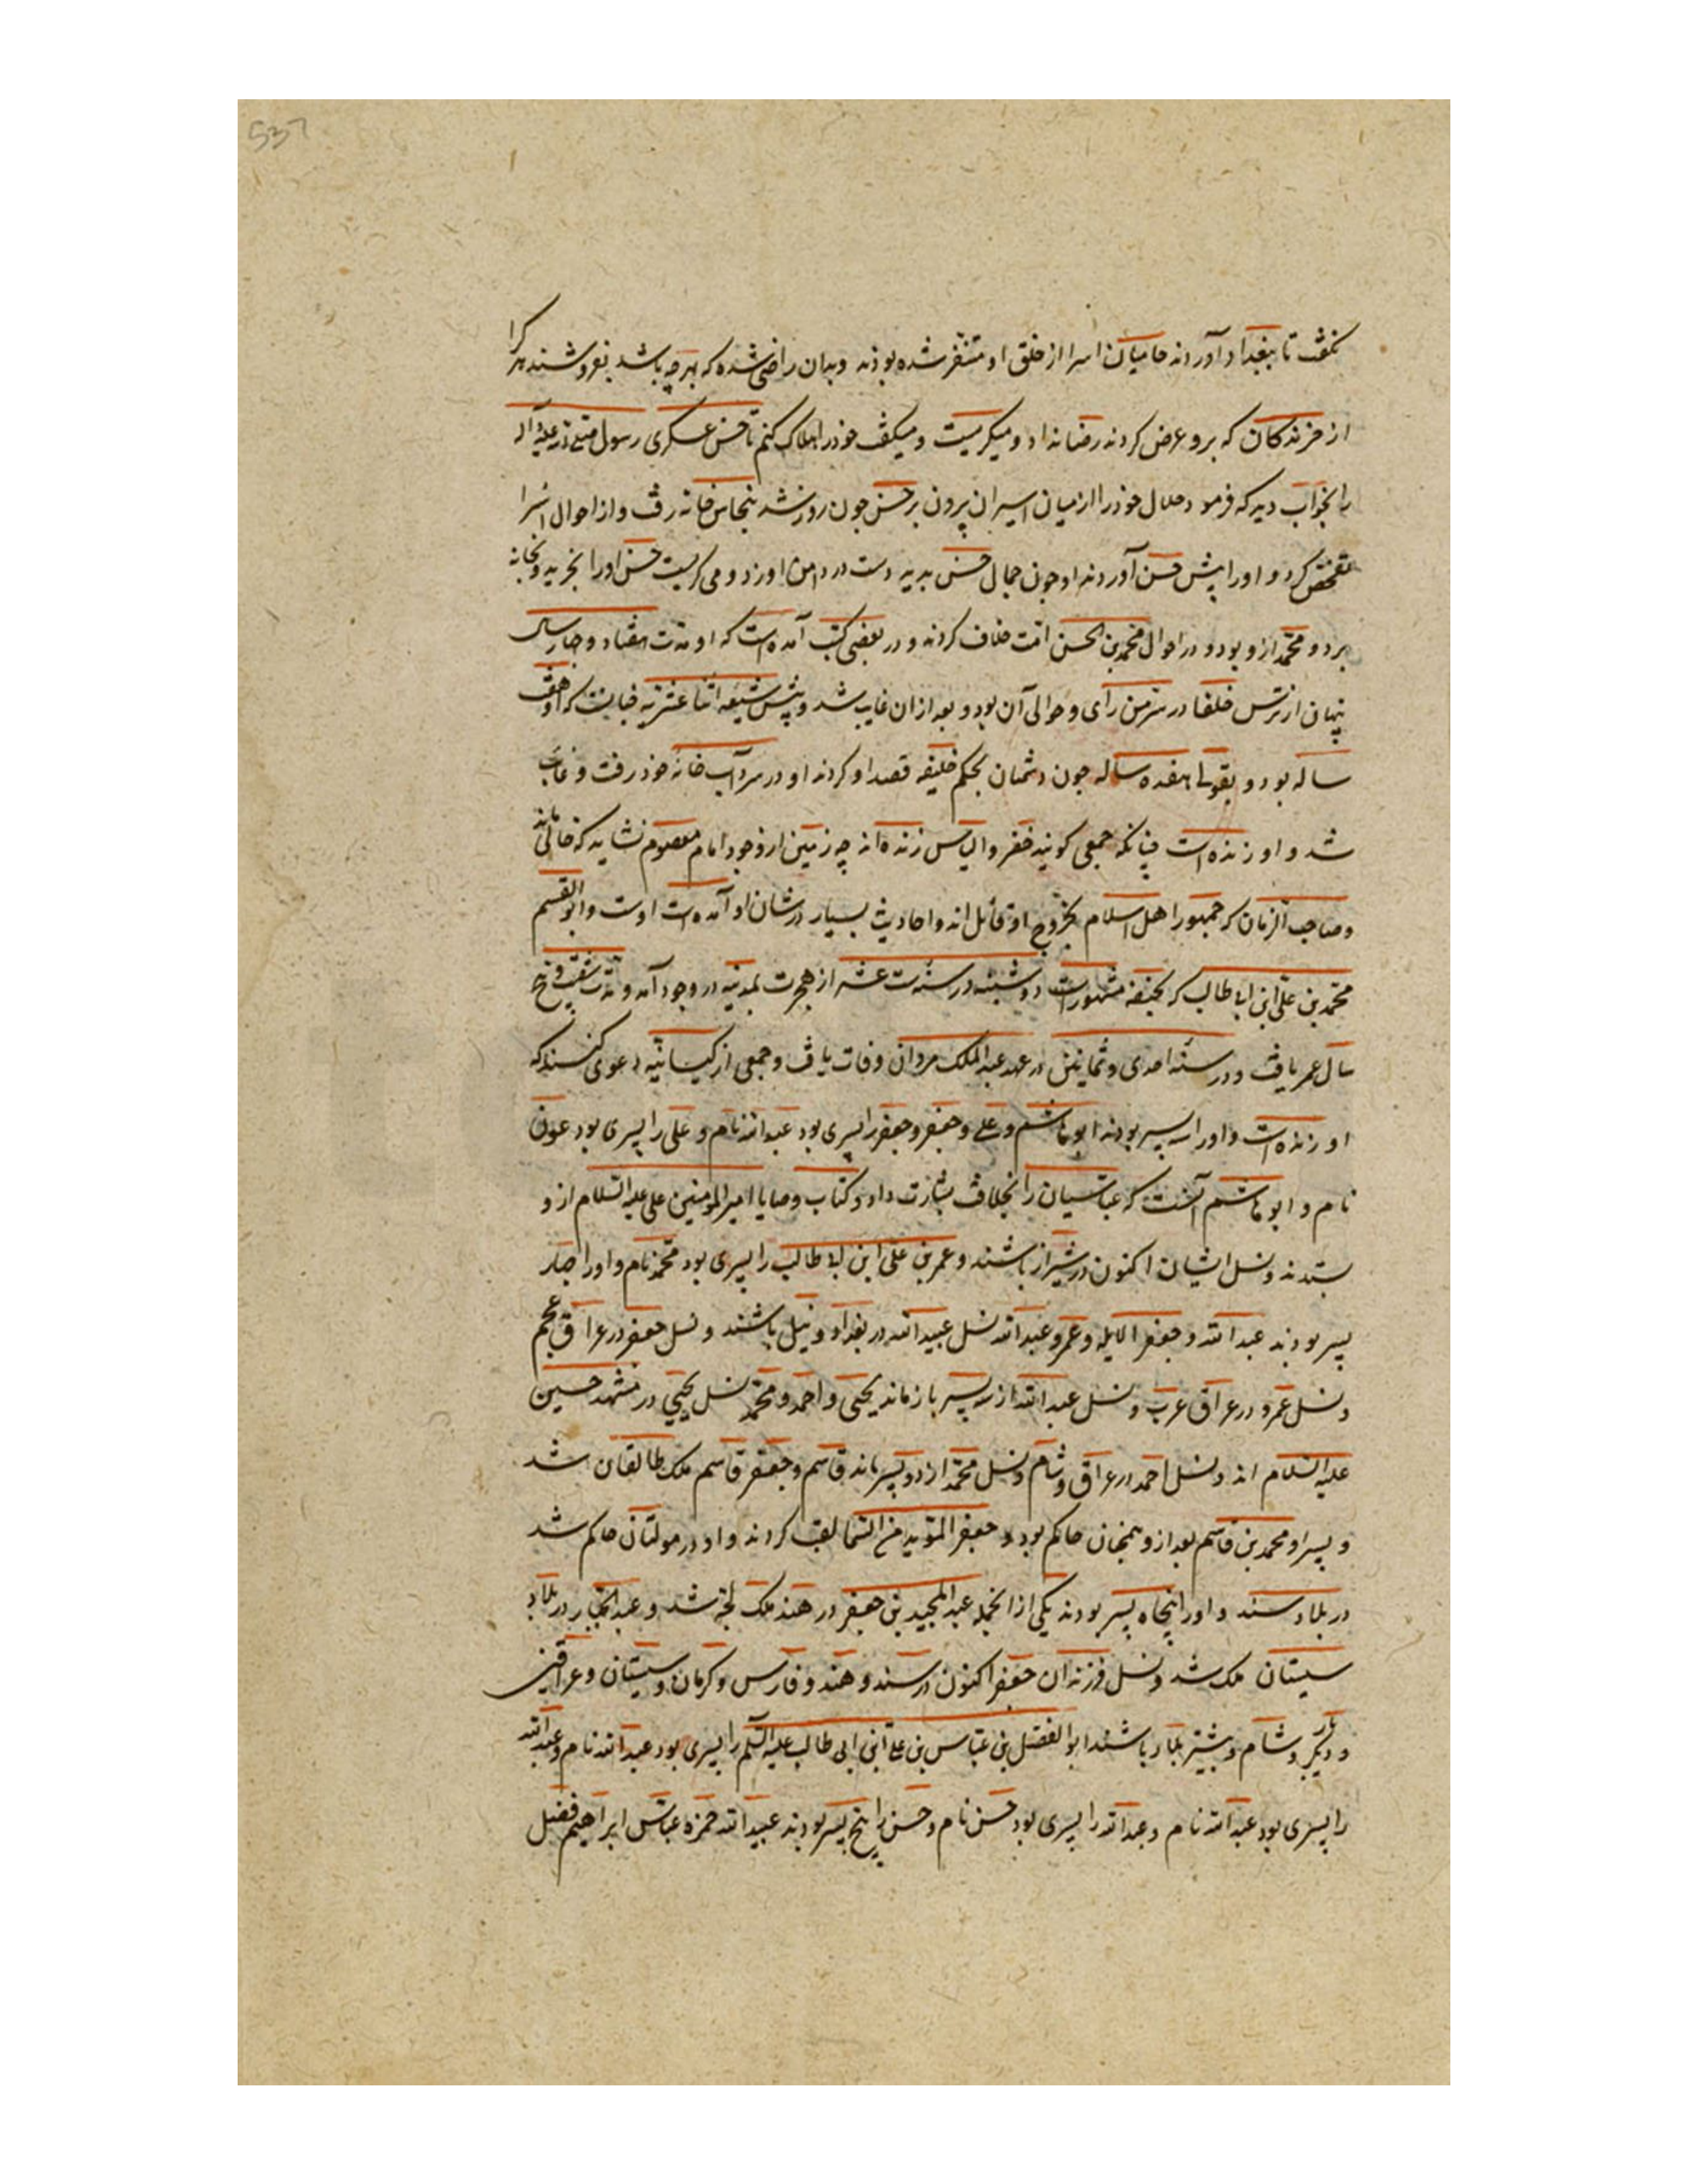 537
نکفت تا ببغداد آوردند حامیان اسرا از خلق او متنفر شده بودند و بدان راضی شده که بهرچه باشد بفروشند هر کرا
از خرندکان که برو عرض کردند رضا نداد و میکریست و میکفت خود را هلاک کنم تا حسن عسکری رسول صلی الله علیه و آله
را بخواب دید که فرمود حلال خود را از میان اسیران بیرون بر حسن چون روز شد بنخاس خانه رفت و از احوال اسرا
تفحص کرد و او را پیش حسن آوردند او چون جمال حسن بدید دست در دامن او زد و می کریست حسن او را بخرید و بخانه
برد و محمد ازو بود و در احوال محمد بن الحسن امت خلاف کردند و در بعضی کتب آمده است که او مدت هفتاد و چهار سال
پنهان از ترس خلفا در سر من رای و حوالی آن بود و بعد از ان غایب شد و پیش شیعه اثنا عشریه چنانست که او هفت
ساله بود و بقولی هفده ساله چون دشمنان بحکم خلیفه قصد او کردند او در سرداب خانه خود رفت و غایب
شد و او زنده است چنانکه جمعی کویند خضر و الیاس زنده اند چه زمین از وجود امام معصوم نشاید که خالی ماند
و صاحب الزمان که جمهور اهل اسلام بخروج او قائل اند و احادیث بسیار در شان او آمده است اوست و ابو القسم
محمد بن علی ابن ابی طالب که بحنفیه مشهورست دوشنبه در سنه ست عشر از هجرت بمدینه در وجود آمد و مدت شصت و پنج
سال عمر یافت و در سنه احدی و ثمانین در عهد عبد الملک مروان وفات یافت و جمعی از کیسانیه دعوی کنند که
او زنده است و او را سه پسر بودند ابو هاشم و علی و جعفر و جعفر را پسری بود عبد الله نام و علی را پسری بود عون
نام و ابو هاشم آنست که عباسیان را بخلافت بشارت داد و کتاب وصایا امیر المومنین علی علیه السلام ازو
ستدند و نسل ایشان اکنون در شیراز باشند و عمر بن علی ابن ابی طالب را پسری بود محمد نام و او را چهار
پسر بودند عبد الله و جعفر الابله و عمرو عبد الله نسل عبید الله در بغداد و نیل باشند و نسل جعفر در عراق عجم
و نسل عمرو در عراق عرب و نسل عبد الله از سه پسر باز ماند یحیی و احمد و محمد نسل یحیی در مشهد حسین
علیه السلام اند و نسل احمد در عراق و شام و نسل محمد از دو پسر ماند قاسم و جعفر قاسم ملک طالقان شد
و پسر او محمد بن قاسم بعد ازو همچنان حاکم بود و جعفر المؤید من السما لقب کردند و او در مولتان حاکم شد
در بلاد سند و او را پنجاه پسر بودند یکی از انجمله عبد المجید بن جعفر در هند ملک لجه شد و عبد الجبار در بلاد
سیستان ملک شد و نسل فرزندان جعفر اکنون در سند و هند و فارس و کرمان و سیستان و عراقین
و دیار بکر و شام و بیشتر بلاد باشند ابو الفضل بن عباس بن علی ابن ابی طالب علیه السلم را پسری بود عبد الله نام و عبد الله
را پسری بود عبد الله نام و عبد الله را پسری بود حسن نام و حسن را پنج پسر بودند عبید الله حمزه عباس ابراهیم فضل